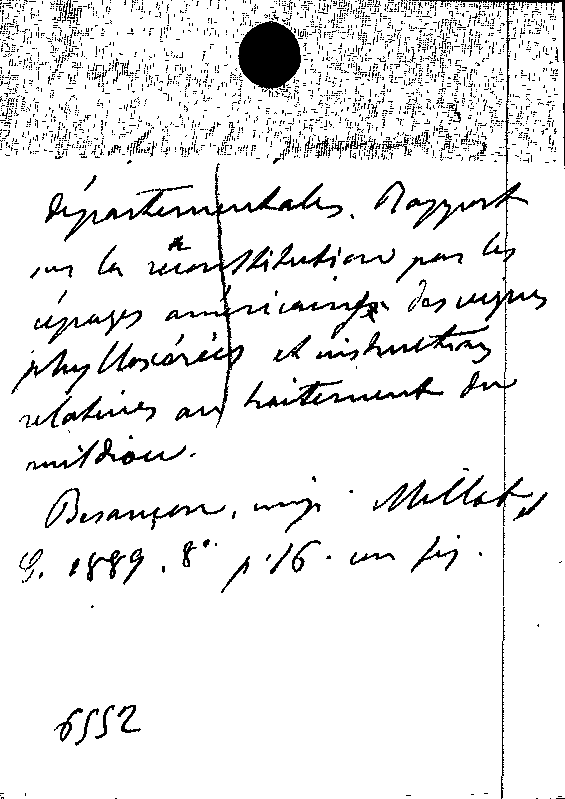 départementales. Rapport
sur la reconstitution par les
cépages américains des vignes
phylloxérées et instructions
relatives au traitement du
mildiou.
Besançon, imp. Millot
1889. 8°. p. 16. un fig.
6552